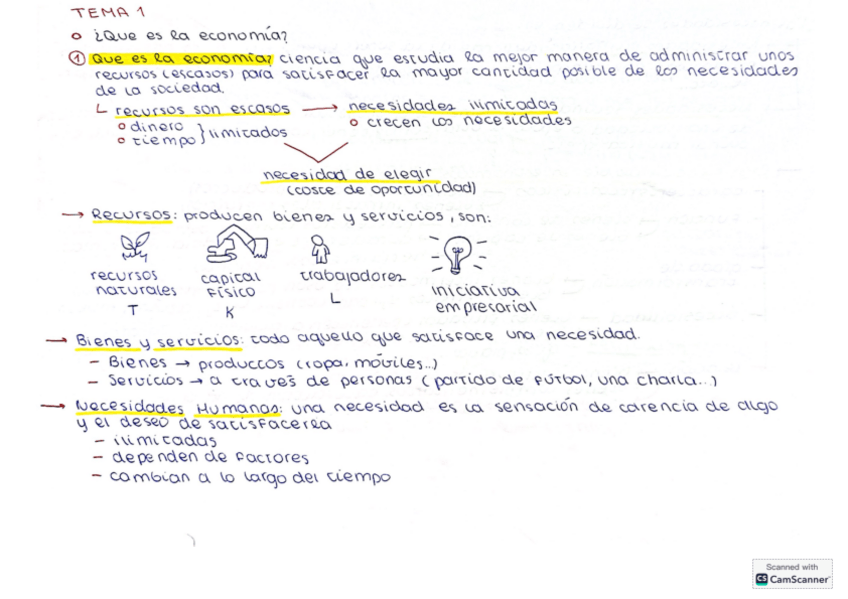 TEMA 1
¿Que es la economía?
① Que es la economía? ciencia que estudia la mejor manera de administrar unos
recursos (escasos) para satisfacer la mayor cantidad posible de las necesidades
de la sociedad.
recursos son escasos → necesidades ilimitadas
dinero
tiempo } limitados
crecen las necesidades
necesidad de elegir
(coste de oportunidad)
→ Recursos: producen bienes y servicios, son:
recursos naturales T
capital físico K
trabajadores L
iniciativa empresarial
→ Bienes y servicios: todo aquello que satisface una necesidad.
- Bienes → productos (ropa, móviles...)
- Servicios → a través de personas (partido de fútbol, una charla...)
→ Necesidades Humanas: una necesidad es la sensación de carencia de algo
y el deseo de satisfacerla
- ilimitadas
- dependen de factores
- cambian a lo largo del tiempo
Scanned with
CS CamScanner